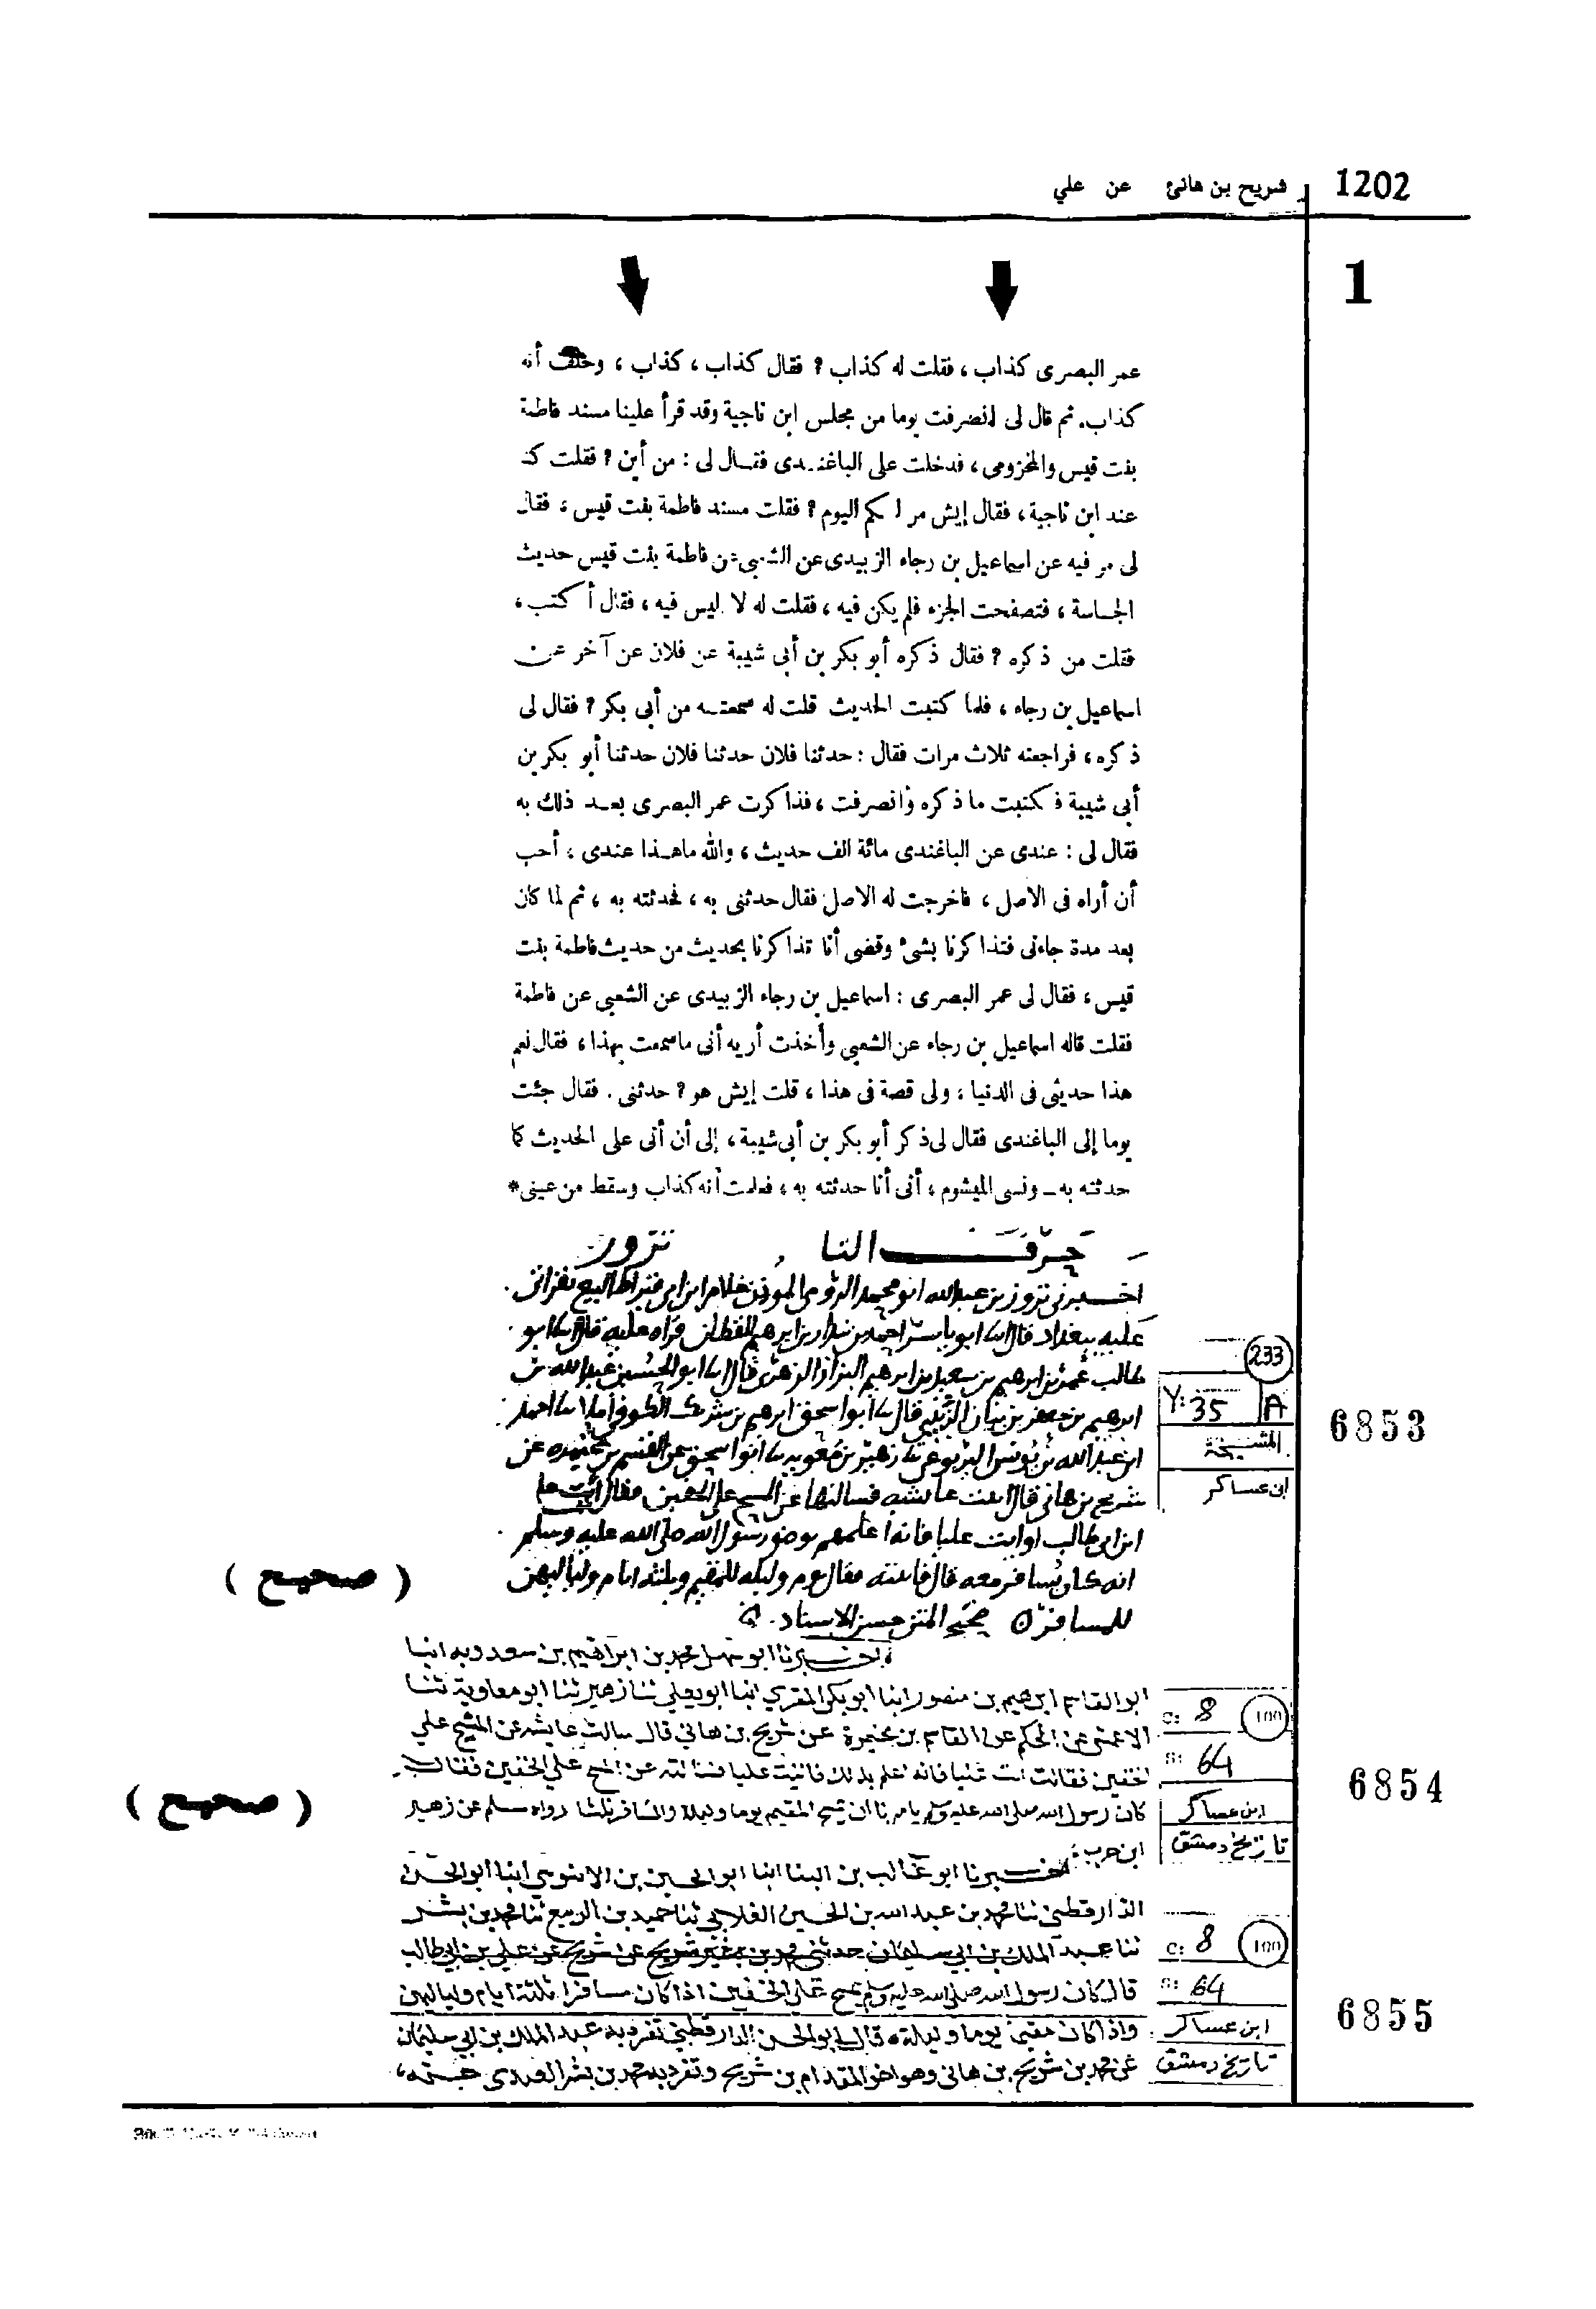 1202
شريح بن هانئ عن علي
1
عمر البصرى كذاب ، فقلت له كذاب ؟ فقال كذاب ، كذاب ، وحلف أنه
كذاب. ثم قال لى انصرفت يوما من مجلس ابن ناجية وقد قرأ علينا مسند فاطمة
بنت قيس والمخزومى ، فدخلت على الباغندى فقال لى : من أين ؟ فقلت كنـ
عند ابن ناجية ، فقال إيش مر لكم اليوم ؟ فقلت مسند فاطمة بنت قيس ، فقال
لى مر فيه عن اسماعيل بن رجاء الزبيدى عن الشعبى عن فاطمة بنت قيس حديث
الجساسة ، فتصفحت الجزء فلم يكن فيه ، فقلت له لا ليس فيه ، فقال أكتب ،
فقلت من ذكره ؟ فقال ذكره أبو بكر بن أبى شيبة عن فلان عن آخر عن
اسماعيل بن رجاء ، فلما كتبت الحديث قلت له سمعته من أبى بكر ؟ فقال لى
ذكره ، فراجعته ثلاث مرات فقال : حدثنا فلان حدثنا فلان حدثنا أبو بكر بن
أبى شيبة فكتبت ما ذكره وانصرفت ، فذاكرت عمر البصرى بعد ذلك به
فقال لى : عندى عن الباغندى مائة الف حديث ، والله ماهذا عندى ، أحب
أن أراه فى الاصل ، فاخرجت له الاصل فقال حدثنى به ، فحدثته به ، ثم لما كان
بعد مدة جاءنى فتذاكرنا بشئ وقضى أنا تذاكرنا بحديث من حديث فاطمة بنت
قيس ، فقال لى عمر البصرى : اسماعيل بن رجاء الزبيدى عن الشعبى عن فاطمة
فقلت قاله اسماعيل بن رجاء عن الشعبى وأخذت أريه أنى ماسمعت بهذا ، فقال نعم
هذا حديثى فى الدنيا ، ولى قصة فى هذا ، قلت إيش هو ؟ حدثنى . فقال جئت
يوما إلى الباغندى فقال لى ذكر أبو بكر بن أبى شيبة ، إلى أن أتى على الحديث كما
حدثته به ـ ونسى الميشوم ، أنى أنا حدثته به ، فعلمت أنه كذاب وسقط من عينى *
اخبرنى بن عبدالله ابو محمد الرومى الموذن غلام ابن ابى
عليه ببغداد قال ابو ياسر احمد بن بندار بن ابرهيم القطان قراه عليه قال ابو
طالب عمر بن ابرهيم بن سعيد بن ابرهيم البزاز الزهرى قال ابو الحسين عبدالله بن
ابرهيم بن جعفر بن بيان الزينبى قال ابو اسحق ابرهيم بن شريك الكوفى املا احمد
ابن عبدالله بن يونس اليربوعى زهير بن معويه ابو اسحق عن القسم بن مخيمره عن
شريح بن هانى قال اتيت عايشه فسالتها عن المسح على الخفين فقالت ائت على
ابن ابى طالب اوايت عليا فانه اعلمهم بوضو رسول الله صلى الله عليه وسلم
انه كان يسافر معه قال فاتيته فقال يوم وليله للمقيم وثلثه ايام ولياليهن
للمسافر ٥ صحيح المتن حسن الاسناد
233
Y: 35 A
المشيخة
ابن عساكر
6853
( صحيح )
اخبرنا ابو سهل محمد بن ابراهيم بن سعدويه انبا
ابو القاسم ابرهيم بن منصور انبا ابو بكر المقري انبا ابو يعلي ثنا زهير ثنا ابو معاوية ثنا
الاعمش عن الحكم عن القاسم بن مخيمرة عن شريح بن هاني قال سالت عايشه عن المسح علي
الخفين فقالت ائت عليا فانه اعلم بذلك فاتيت عليا فسألته عن المسح علي الخفين فقال
كان رسول الله صلى الله عليه وسلم يامرنا ان يمسح المقيم يوما وليلة والمسافر ثلثا رواه مسلم عن زهير
ابن حرب
c: 8 100
s: 64
ابن عساكر
تاريخ دمشق
6854
( صحيح )
اخبرنا ابو غالب بن البنا انبا ابو الحسين بن الابنوسي انبا ابو الحسن
الدارقطني ثنا محمد بن عبد الله بن الحسين العلاف ثنا حميد بن الربيع ثنا محمد بن بشر
ثنا عبد الملك بن ابي سليمان حدثني محمد بن شريح عن شريح عن علي بن ابي طالب
قال كان رسول الله صلى الله عليه وسلم يمسح علي الخفين اذا كان مسافرا ثلثة ايام ولياليهن
واذا كان مقيما يوما وليلة قال ابو الحسن الدارقطني تفرد به عبد الملك بن ابي سليمان
عن محمد بن شريح بن هاني وهو اخو المقدام بن شريح وتفرد به محمد بن بشر العبدي عنه
c: 8 100
s: 64
ابن عساكر
تاريخ دمشق
6855